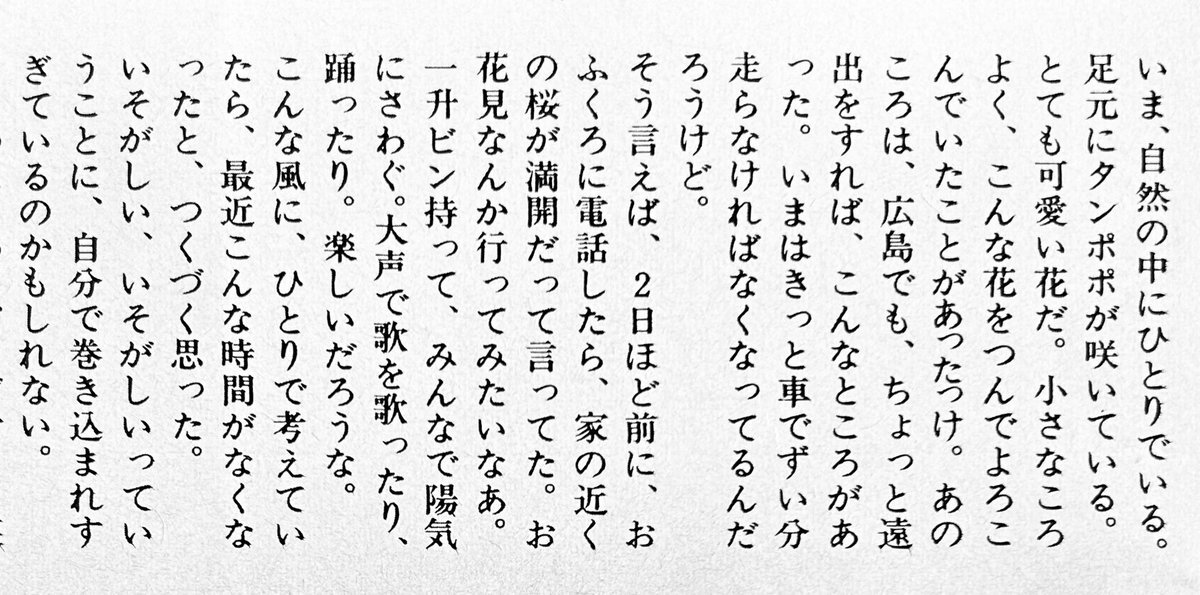 いま、自然の中にひとりでいる。
足元にタンポポが咲いている。
とても可愛い花だ。小さなころ
よく、こんな花をつんでよろこ
んでいたことがあったっけ。あの
ころは、広島でも、ちょっと遠
出をすれば、こんなところがあ
った。いまはきっと車でずい分
走らなければなくなってるんだ
ろうけど。
そう言えば、2日ほど前に、お
ふくろに電話したら、家の近く
の桜が満開だって言ってた。お
花見なんか行ってみたいなあ。
一升ビン持って、みんなで陽気
にさわぐ。大声で歌を歌ったり、
踊ったり。楽しいだろうな。
こんな風に、ひとりで考えてい
たら、最近こんな時間がなくな
ったと、つくづく思った。
いそがしい、いそがしいってい
うことに、自分で巻き込まれす
ぎているのかもしれない。